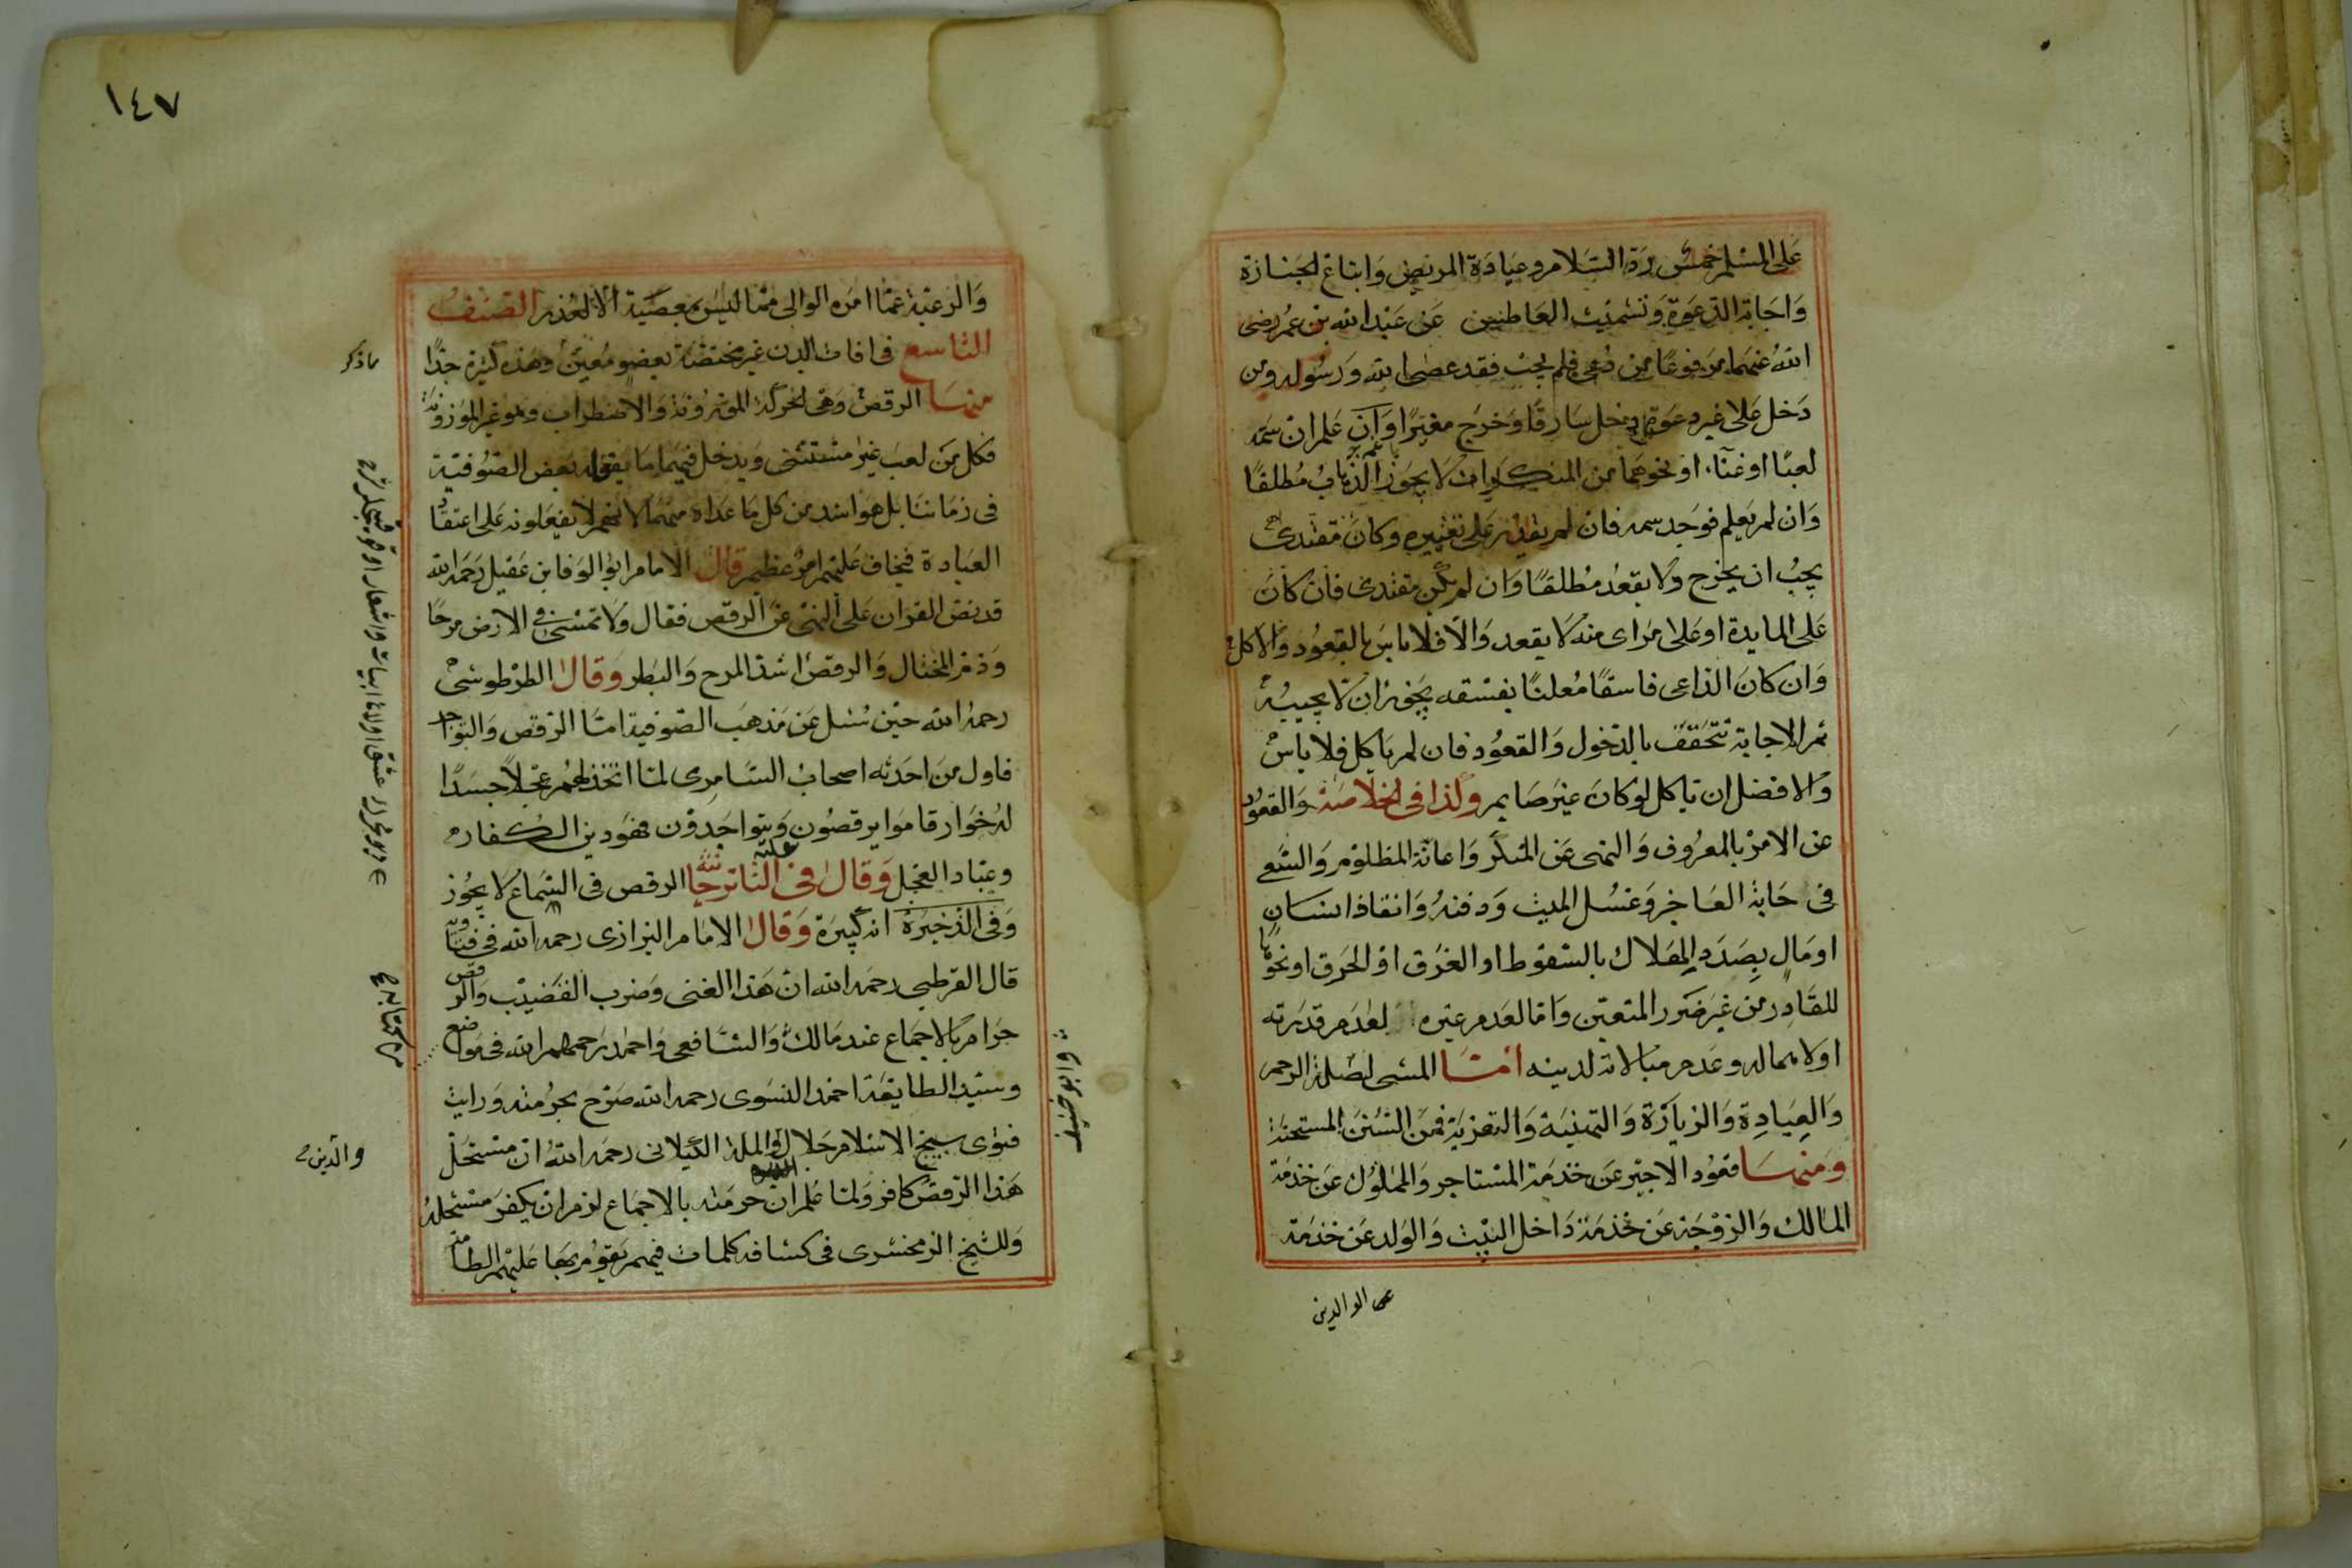 على المسلم خمس رد السلام وعيادة المريض واتباع الجنازة
واجابة الدعوة وتشميت العاطس عن عبد الله بن عمر رضى
الله عنهما مرفوعا من دعى فلم يجب فقد عصى الله ورسوله ومن
دخل على غير دعوة دخل سارقا وخرج مغيرا وان علم ان ثمه
لعبا او غناء او نحوهما من المنكرات لا يجوز الذهاب مطلقا
وان لم يعلم فوجد ثمه فان لم يقدر على تغييره وكان مقتدى
يجب ان يخرج ولا يقعد مطلقا وان لم يكن مقتدى فان كان
على المايدة او على مراى منه لا يقعد والا فلا باس بالقعود والاكل
وان كان الداعى فاسقا معلنا بفسقه يجوز ان لا يجيبه
ثم الاجابة تتحقق بالدخول والقعود فان لم ياكل فلا باس
والافضل ان ياكل لو كان غير صايم وكذا فى الخلاصة والقعود
عن الامر بالمعروف والنهى عن المنكر واعانة المظلوم والسعى
فى حاجة العاجز وغسل الميت ودفنه وانقاذ انسان
او مال بصدد الهلاك بالسقوط او الغرق او الحرق او نحوها
للقادر من غير ضرر المتعين واما لعدم غيره لعدم قدرته
او لاهماله وعدم مبالاته لدينه امـا المشى لصلة الرحم
والعيادة والزيارة والتهنية والتعزية فمن السنن المستحبة
ومنها قعود الاجير عن خدمة المستاجر والمملوك عن خدمة
المالك والزوجة عن خدمة داخل البيت والولد عن خدمة
الوالدين
١٤٧
والرعية عما امره الوالى مما ليس بمعصية الا لعذر الصنف
التاسع فى افات البدن غير مختصة بعضو معين وهذه كثيرة جدا
منها الرقص وهى الحركة الموزونة والاضطراب وهو غير الموزونة
فكل من لعب غير مستثنى ويدخل فيهما ما يفعله بعض الصوفية
فى زماننا بل هو اشد من كل ما عداه منهما لانهم لا يفعلونه على اعتقاد
العبادة فيخاف عليهم امر عظيم قال الامام ابو الوفا بن عقيل رحمه الله
قد نص القران على النهى عن الرقص فقال ولا تمش فى الارض مرحا
وذم المختال والرقص اشد المرح والبطر وقال الطرطوشى
رحمه الله حين سئل عن مذهب الصوفية اما الرقص والتواجد
فاول من احدثه اصحاب السامرى لما اتخذ لهم عجلا جسدا
له خوار قاموا يرقصون ويتواجدون فهو دين الكفار
وعباد العجل وقال فى التاترخانيه الرقص فى السماع لا يجوز
وفى الذخيرة انه كبيرة وقال الامام البزازى رحمه الله فى فتاويه
قال القرطبى رحمه الله ان هذا الغنى وضرب القضيب والرقص
حرام بالاجماع عند مالك والشافعى واحمد رحمهم الله فى مواضع
وسيد الطايفة احمد النسوى رحمه الله صرح بحرمته ورايت
فتوى شيخ الاسلام جلال الملة والدين الكيلانى رحمه الله ان مستحل
هذا الرقص كافر ولما علم ان حرمته بالاجماع لزم ان يكفر مستحله
وللشيخ الزمخشرى فى كشافه كلمات فيهم يقوم بها عليهم الطامة
ماذكر
والدين